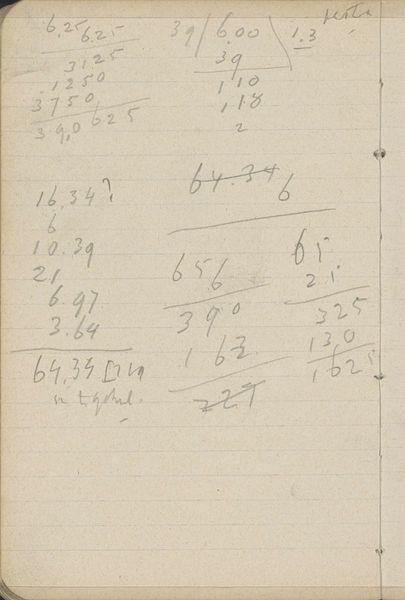 6.25 6.25
3125
1250
3750
39,0625
39 / 6.00 \ 1.3
39
110
118
2
16.34
6
10.39
21
6.97
3.64
64.34
64.34
6
656
390
162
227
65
25
325
130
1625